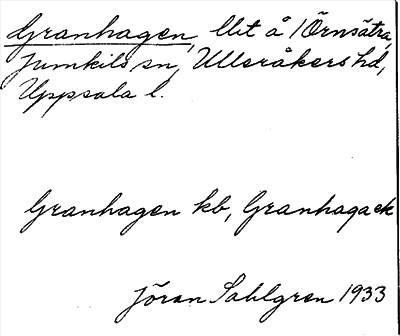 Granhagen, llit å 1 Örnsätra,
Jumkils sn, Ulleråkers hd,
Uppsala l.
Granhagen kb, Granhagaek
Jöran Sahlgren 1933